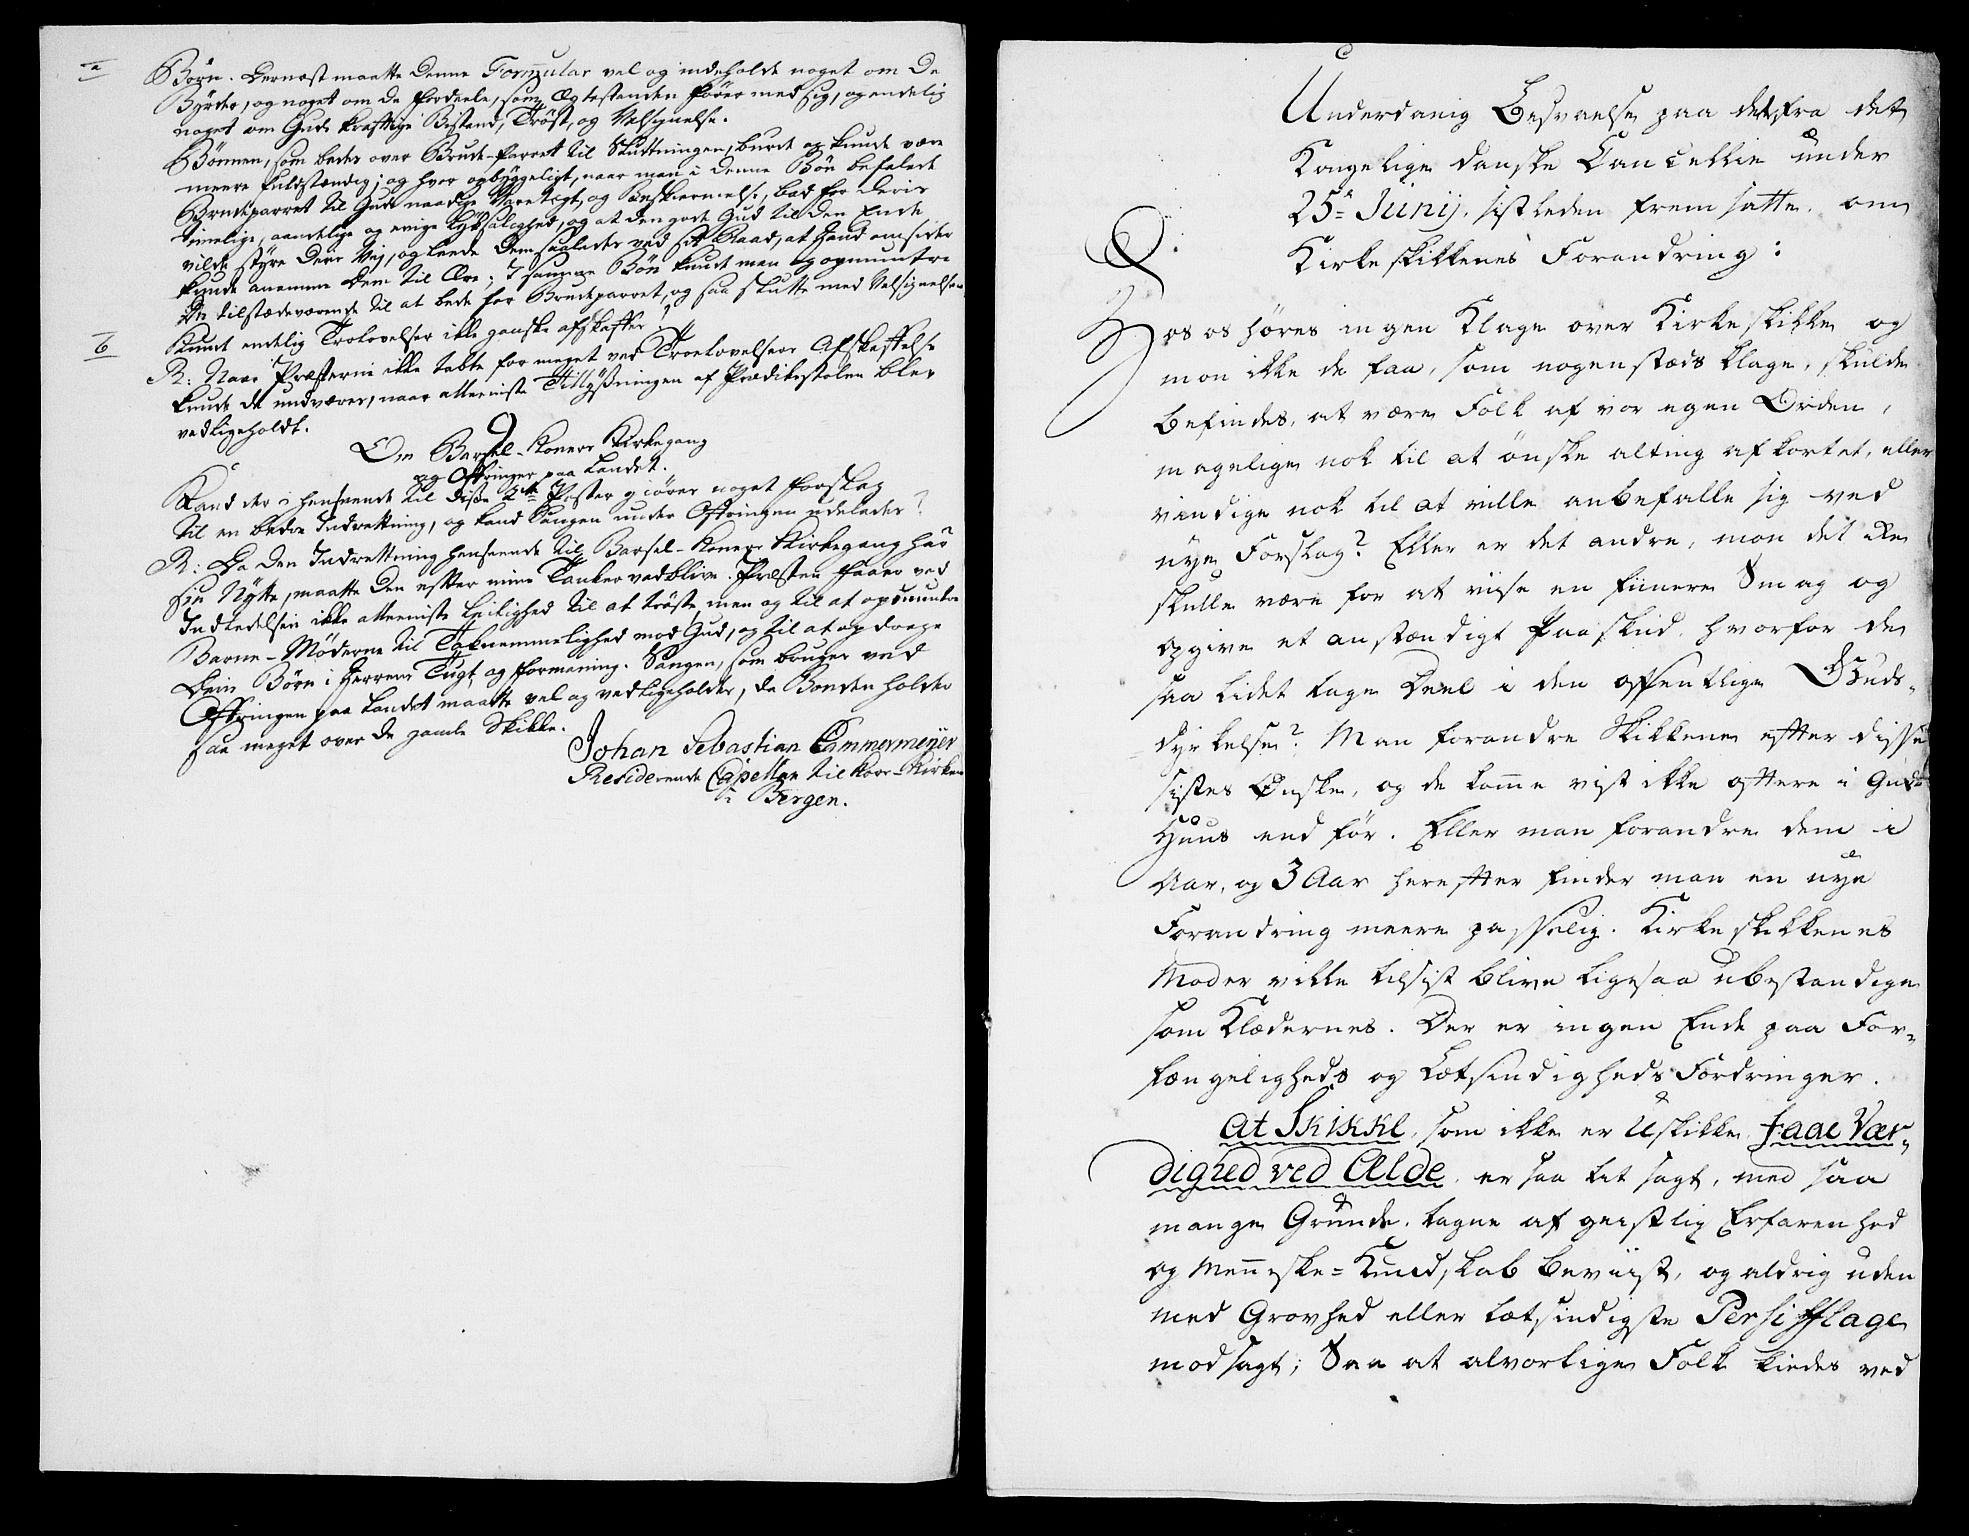 a
Børn. Dernæst maatte denne Formular vel og indeholde noget om de
Byrder, og noget om de Fordeele, som Ægtestanden fører med sig, og endelig
noget om Guds kraftige Bistand, Trøst, og Velsignelse.
Bønnen, som bedes over Brude-Parret til Sluttningen, burde og kunde være
meere fuldstændig; og hvor opbyggeligt, naar man i denne Bøn befalede
Brudeparret til Guds naadige Varetægt, og Beskiermelse, bad for deris
timelige, aandelige og evige Lyksalighed, og at den gode Gud til den Ende
vilde styre deris Vej, og leede dem saaledes ved sit Raad, at Hand omsider
kunde anamme dem til Ære; I samme Bøn kunde man og opmuntre
de tilstædeværende til at bede for Brudeparret, og saa slutte med Velsignelsen
6
Kunde endelig Trolovelser ikke ganske afskaffes?
R: Naar Præsterne ikke tabte for meget ved Troelovelsers Afskaffelse
kunde de undværes, naar alleeniste Tillysningen af Prædikestolen blev
vedligeholdt.
9
Om Barsel-Koners Kirkegang
og Offringer paa Landet.
Kand der i henseende til disse 2de Poster giøres noget Forslag
til en bedre Indrettning, og kand Sangen under Offringen udelades?
R: Da den Indrettning henseende til Barsel-Koners Kirkegang har
sin Nytte, maatte den efter mine Tanker vedblive. Præsten faaer ved
Indledelsen ikke alleeniste Leilighed til at trøste, men og til at opmuntre
Barne-Møderne til Taknemmelighed mod Gud, og til at opdrage
deris Børn i Herrens Tugt og Formaning. Sangen, som bruges ved
Offringen paa Landet maatte vel og vedligeholdes, da Bonden holder
saa meget over de gamle Skikke.
Johan Sebastian Cammermeyer
Residerende Capellan til Kors-Kirken
i Bergen.
Underdanig Besvarelse paa det, fra det
Kongelige danske Cancellie under
25de Junij. sistleden fremsatte, om
Kirkeskikkenes Forandring:
Hos os høres ingen Klage over Kirkeskikke og
mon ikke de faa, som nogenstæds klage, skulde
befindes, at være Folk af vor egen Orden,
magelige nok til at ønske alting afkortet, eller
vindige nok til at ville anbefalle sig ved
nye Forslag? Eller er det andre, mon det ikke
skulle være for at vise en finere Smag og
opgive et anstændigt Paaskud, hvorfor de
saa lidet tage Deel i den offentlige Guds-
dyrkelse? Man forandre Skikkene efter disse
sistes Ønske, og de komme vist ikke oftere i Guds
Huus end før. Eller man forandre dem i
Aar, og 3 Aar herefter finder man en nye
Forandring meere passelig. Kirkeskikkenes
Moder ville tilsist blive ligesaa ubestandige
som Klædernes. Der er ingen Ende paa For-
fængeligheds og Letsindigheds Fordringer.
At Skikke, som ikke er Uskikke, faae Vær-
dighed ved Ælde, er saa tit sagt, med saa
mange Grunde, tagne af geistlig Erfarenhed
og Menneske-Kundskab beviist, og aldrig uden
med Grovhed eller letsindigste Persifflage
modsagt; Saa at alvorlige Folk kiedes ved